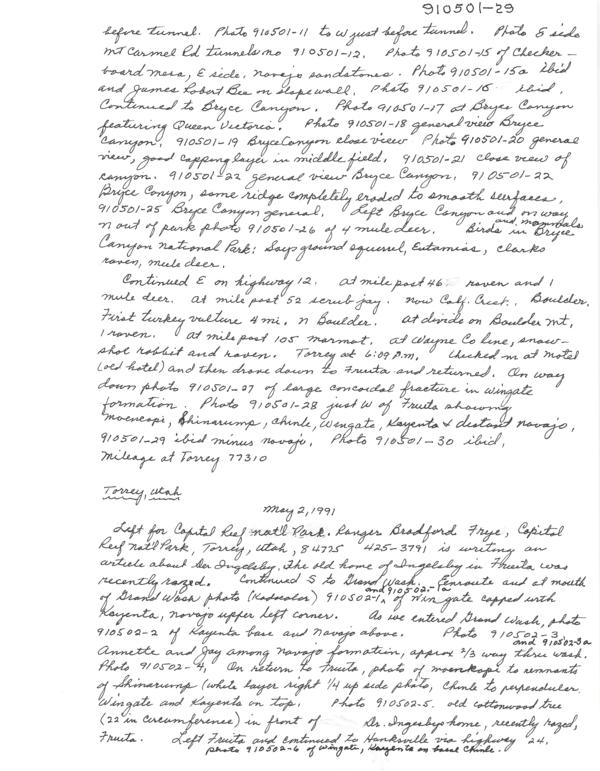 910501-29
before tunnel. Photo 910501-11 to W just before tunnel. Photo E side
Mt Carmel Rd tunnels no 910501-12. Photo 910501-15 of Checker-
board mesa, E side. navajo sandstones. Photo 910501-15a ibid
and James Robert Bee on slope wall. Photo 910501-16 ibid.
Continued to Bryce Canyon. Photo 910501-17 at Bryce Canyon
featuring Queen Victoria. Photo 910501-18 general view Bryce
Canyon. 910501-19 Bryce Canyon close view Photo 910501-20 general
view, good capping layer in middle field. 910501-21 close view of
canyon. 910501-22 general view Bryce Canyon. 910501-22
Bryce Canyon, some ridge completely eroded to smooth surfaces,
910501-25 Bryce Canyon general. Left Bryce Canyon and on way
n out of park photo 910501-26 of 4 mule deer. Birds and mammals in Bryce
Canyon National Park: Says ground squirrel, Eutamias, clarks
raven, mule deer.
Continued E on highway 12. at mile post 46 raven and 1
mule deer. at mile post 52 scrub jay. now Calf. Crest. Boulder.
First turkey vulture 4 mi. n Boulder. at divide on Boulder mt,
1 raven. at mile post 105 marmot. at Wayne Co line, snow-
shoe rabbit and raven. Torrey at 6:09 P.M. Checked in at motel
(old hotel) and then drove down to Fruita and returned. On way
down photo 910501-27 of large concoidal fracture in wingate
formation. Photo 910501-28 just W of Fruita showing
moencopi, Shinarump, chinle, wingate, Kayenta & distant navajo,
910501-29 ibid minus navajo, Photo 910501-30 ibid,
Mileage at Torrey 77310
Torrey, Utah
May 2, 1991
Left for Capital Reef nat'l Park. Ranger Bradford Frye, Capitol
Reef Nat'l Park, Torrey, Utah, 84725 425-3791 is writing an
article about Dr Ingelsby. The old home of Ingelsby in Fruita was
recently razed. Continued S to Grand Wash. Enroute and at mouth
of Grand Wash photo (Kodacolor) 910502-1, and 910502-1a of wingate capped with
Kayenta, navajo upper left corner. As we entered Grand Wash, photo
910502-2 of Kayenta base and navajo above. Photo 910502-3 and 910502-3a
Annette and Jay among navajo formation, approx 2/3 way thru wash.
Photo 910502-4, On return to Fruita, photo of moenkopi to remnants
of Shinarump (white layer right 1/4 up side photo, Chinle to perpendular
Wingate and Kayenta on top. Photo 910502-5. old cottonwood tree
(22 in circumference) in front of Dr. Ingelsbys home, recently razed,
Fruita. Left Fruita and continued to Hanksville via highway 24.
photo 910502-6 of wingate, Kayenta on base Chinle.